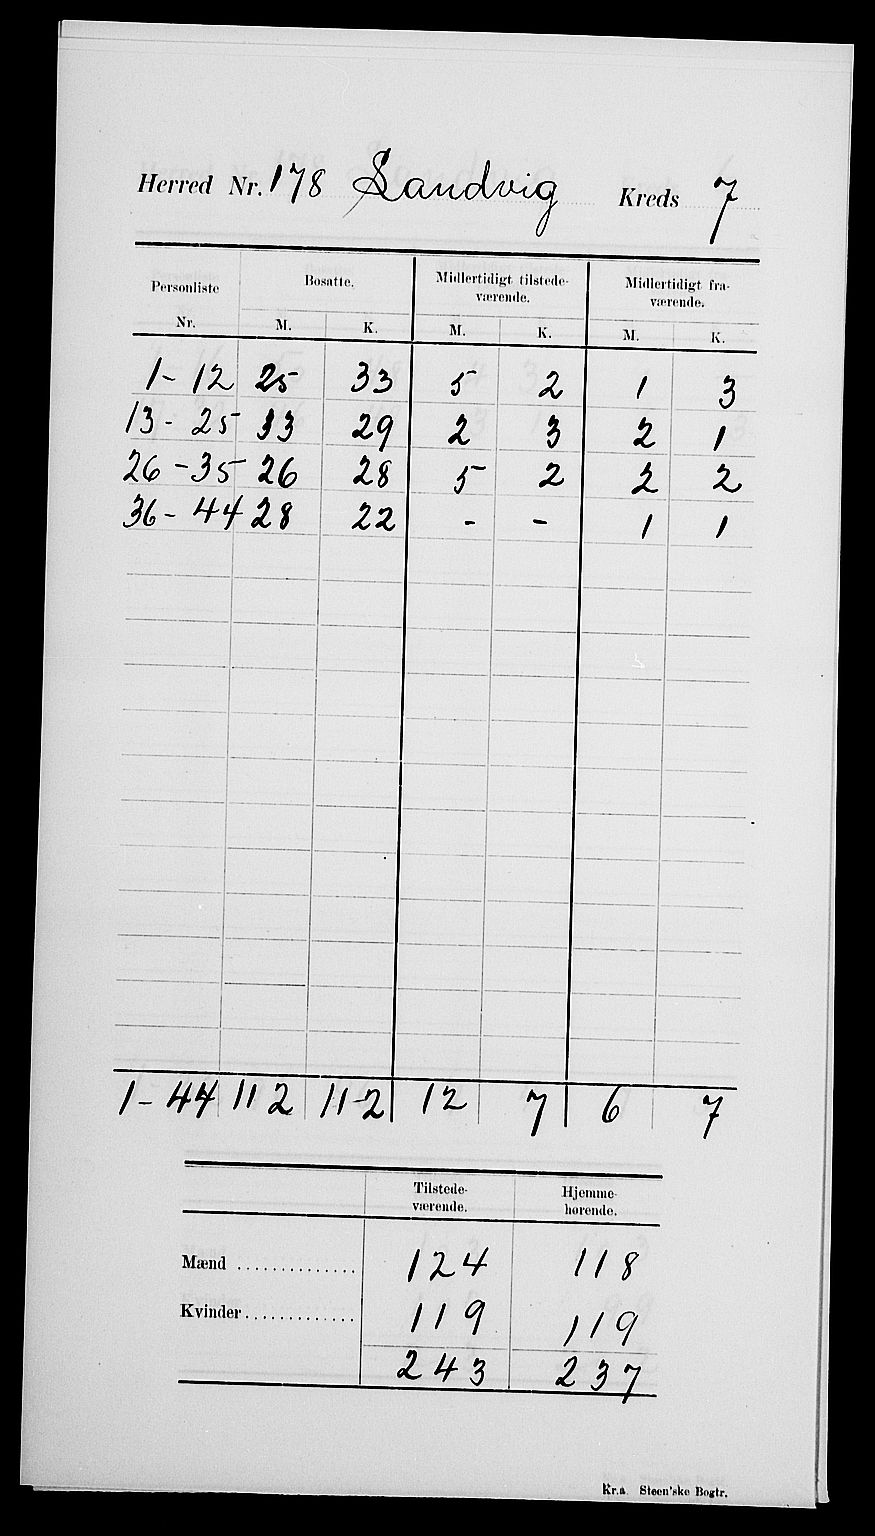 Herred Nr. 178 Sandvig Kreds 7
Personliste Nr. Bosatte. Midlertidigt tilstede-værende. Midlertidigt fra-værende.
M. K. M. K. M. K.
1-12 25 33 5 2 1 3
13-25 33 29 2 3 2 1
26-35 26 28 5 2 2 2
36-44 28 22 - - 1 1
1-44 112 112 12 7 6 7
Tilstede-værende. Hjemme-hørende.
Mænd .............. 124 118
Kvinder ............. 119 119
243 237
Kr.a. Steen'ske Bogtr.